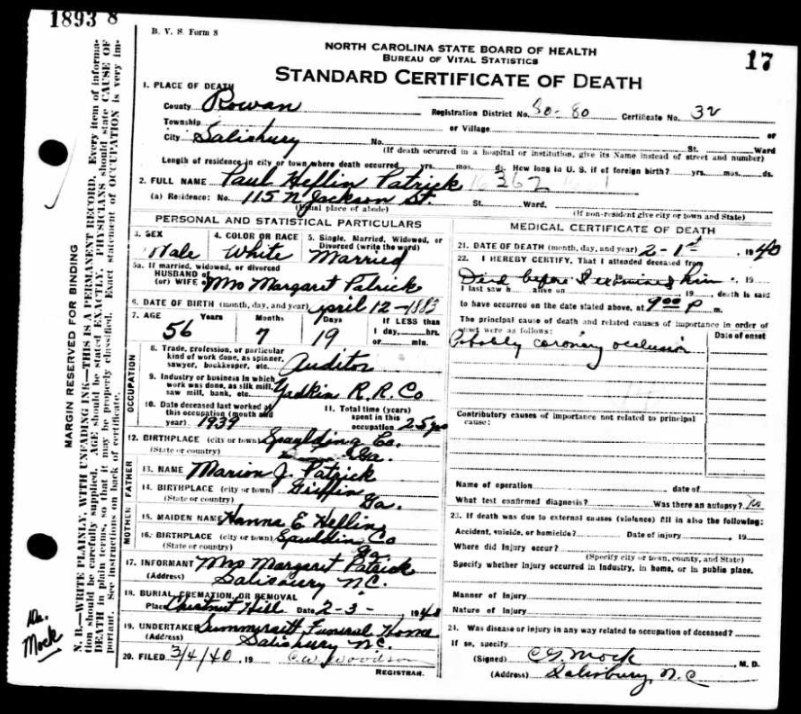 1893 8
B. V. S. Form 8
17
NORTH CAROLINA STATE BOARD OF HEALTH
BUREAU OF VITAL STATISTICS
STANDARD CERTIFICATE OF DEATH
MARGIN RESERVED FOR BINDING
N. B.—WRITE PLAINLY, WITH UNFADING INK—THIS IS A PERMANENT RECORD. Every item of informa-
tion should be carefully supplied. AGE should be stated EXACTLY. PHYSICIANS should state CAUSE OF
DEATH in plain terms, so that it may be properly classified. Exact statement of OCCUPATION is very im-
portant. See instructions on back of certificate.
Dr. Mock
1. PLACE OF DEATH
County Rowan Registration District No. 80-80 Certificate No. 32
Township or Village or
City Salisbury No. St. Ward
(If death occurred in a hospital or institution, give its Name instead of street and number)
Length of residence in city or town where death occurred yrs. mos. ds. How long in U. S. if of foreign birth? yrs. mos. ds.
2. FULL NAME Paul Heflin Patrick 362
(a) Residence: No. 115 N Jackson St. St. Ward.
(Usual place of abode) (If non-resident give city or town and State)
PERSONAL AND STATISTICAL PARTICULARS
3. SEX 4. COLOR OR RACE 5. Single, Married, Widowed, or Divorced (write the word)
Male White Married
5a. If married, widowed, or divorced
HUSBAND of
(or) WIFE of Mrs Margaret Patrick
6. DATE OF BIRTH (month, day, and year) April 12-1883
7. AGE Years Months Days If LESS than
1 day, hrs.
56 7 19 or min.
OCCUPATION
8. Trade, profession, or particular
kind of work done, as spinner,
sawyer, bookkeeper, etc. Auditor
9. Industry or business in which
work was done, as silk mill,
saw mill, bank, etc. Yadkin R. R. Co
10. Date deceased last worked at
this occupation (month and
year) 1939
11. Total time (years)
spent in this
occupation 25 yrs
12. BIRTHPLACE (city or town) Spaulding Co.
(State or country) Ga.
FATHER
13. NAME Marion J. Patrick
14. BIRTHPLACE (city or town) Griffin
(State or country) Ga.
MOTHER
15. MAIDEN NAME Hanna E. Heflin
16. BIRTHPLACE (city or town) Spauldin Co
(State or country) Ga
17. INFORMANT Mrs Margaret Patrick
(Address) Salisbury N.C.
18. BURIAL, CREMATION, OR REMOVAL
Place Chestnut Hill Date 2-3- 1940
19. UNDERTAKER Summersett Funeral Home
(Address) Salisbury N.C.
20. FILED 3/4/40, 19 C.W. Woodson
REGISTRAR.
MEDICAL CERTIFICATE OF DEATH
21. DATE OF DEATH (month, day, and year) 2-1st, 1940
22. I HEREBY CERTIFY, That I attended deceased from
Died before I examined him, 19
I last saw h alive on 19 , death is said
to have occurred on the date stated above, at 9:00 P m.
The principal cause of death and related causes of importance in order of
onset were as follows: Date of onset
Probably coronary occlusion
Contributory causes of importance not related to principal
cause:
Name of operation date of
What test confirmed diagnosis? Was there an autopsy? No
23. If death was due to external causes (violence) fill in also the following:
Accident, suicide, or homicide? Date of injury , 19
Where did injury occur?
(Specify city or town, county, and State)
Specify whether injury occurred in industry, in home, or in public place.
Manner of Injury
Nature of Injury
24. Was disease or injury in any way related to occupation of deceased?
If so, specify
(Signed) C G Mock, M. D.
(Address) Salisbury, N.C